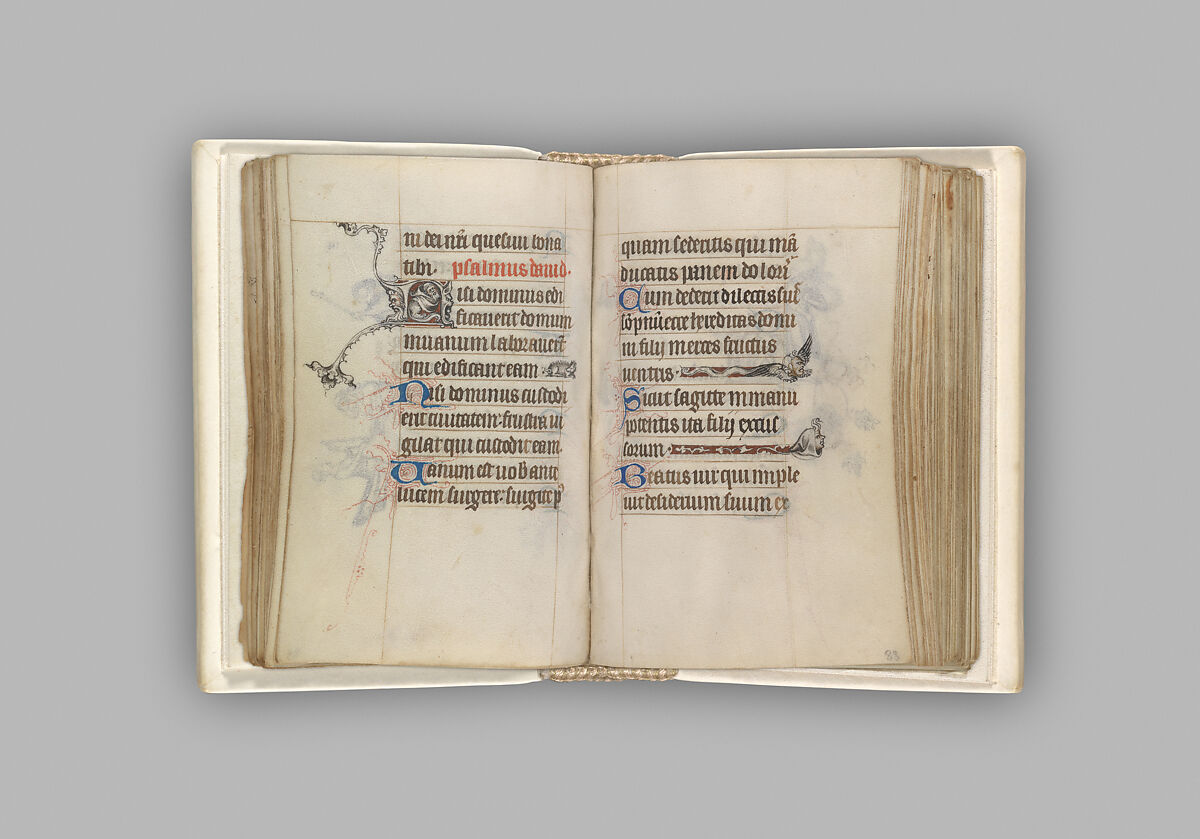 ni dei nr̄i quesiui bona
tibi. psalmus dauid.
Nisi dominus edi
ficauerit domum
in uanum laborauer̄t
qui edificant eam
Nisi dominus custodi
erit ciuitatem: frustra ui
gilat qui custodit eam.
Uanum est uobis ante
lucem surgere: surgite p
quam sederitis qui mā
ducatis panem dolor
Cum dederit dilectis su
sōpnū ecce hereditas domi
ni filij merces fructus
uentris.
Sicut sagitte in manu
potentis ita filij excus
sorum.
Beatus uir qui imple
uit desiderium suum ex
83